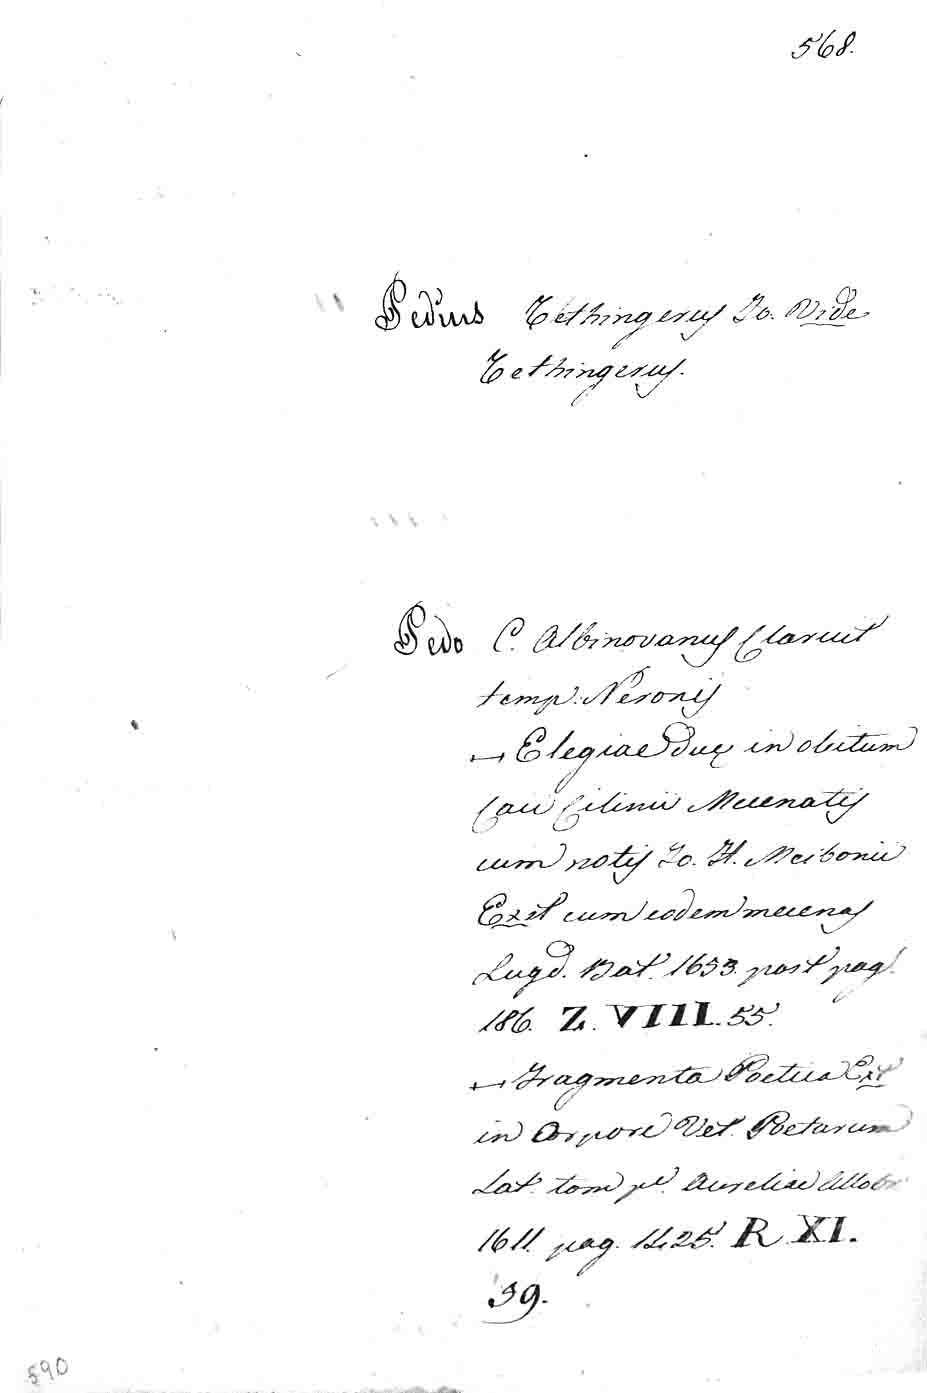 568.
Pedius Tethingerus Jo. Vide
Tethingerus.
Pedo C. Albinovanus Claruit
temp: Neronis
— Elegiae duę in obitum
Caii Cilinii Mecenatis
cum notis Jo. H. Meibonii
Exst cum eodem mecenas
Lugd. Bat. 1653. post pag.
186. Z. VIII. 55.
— Fragmenta Poetica Ext
in Corpore Vet. Poetarum
Lat. tom pe. Aureliae Allobr
1611. pag. 1425. R. XI.
39.
590